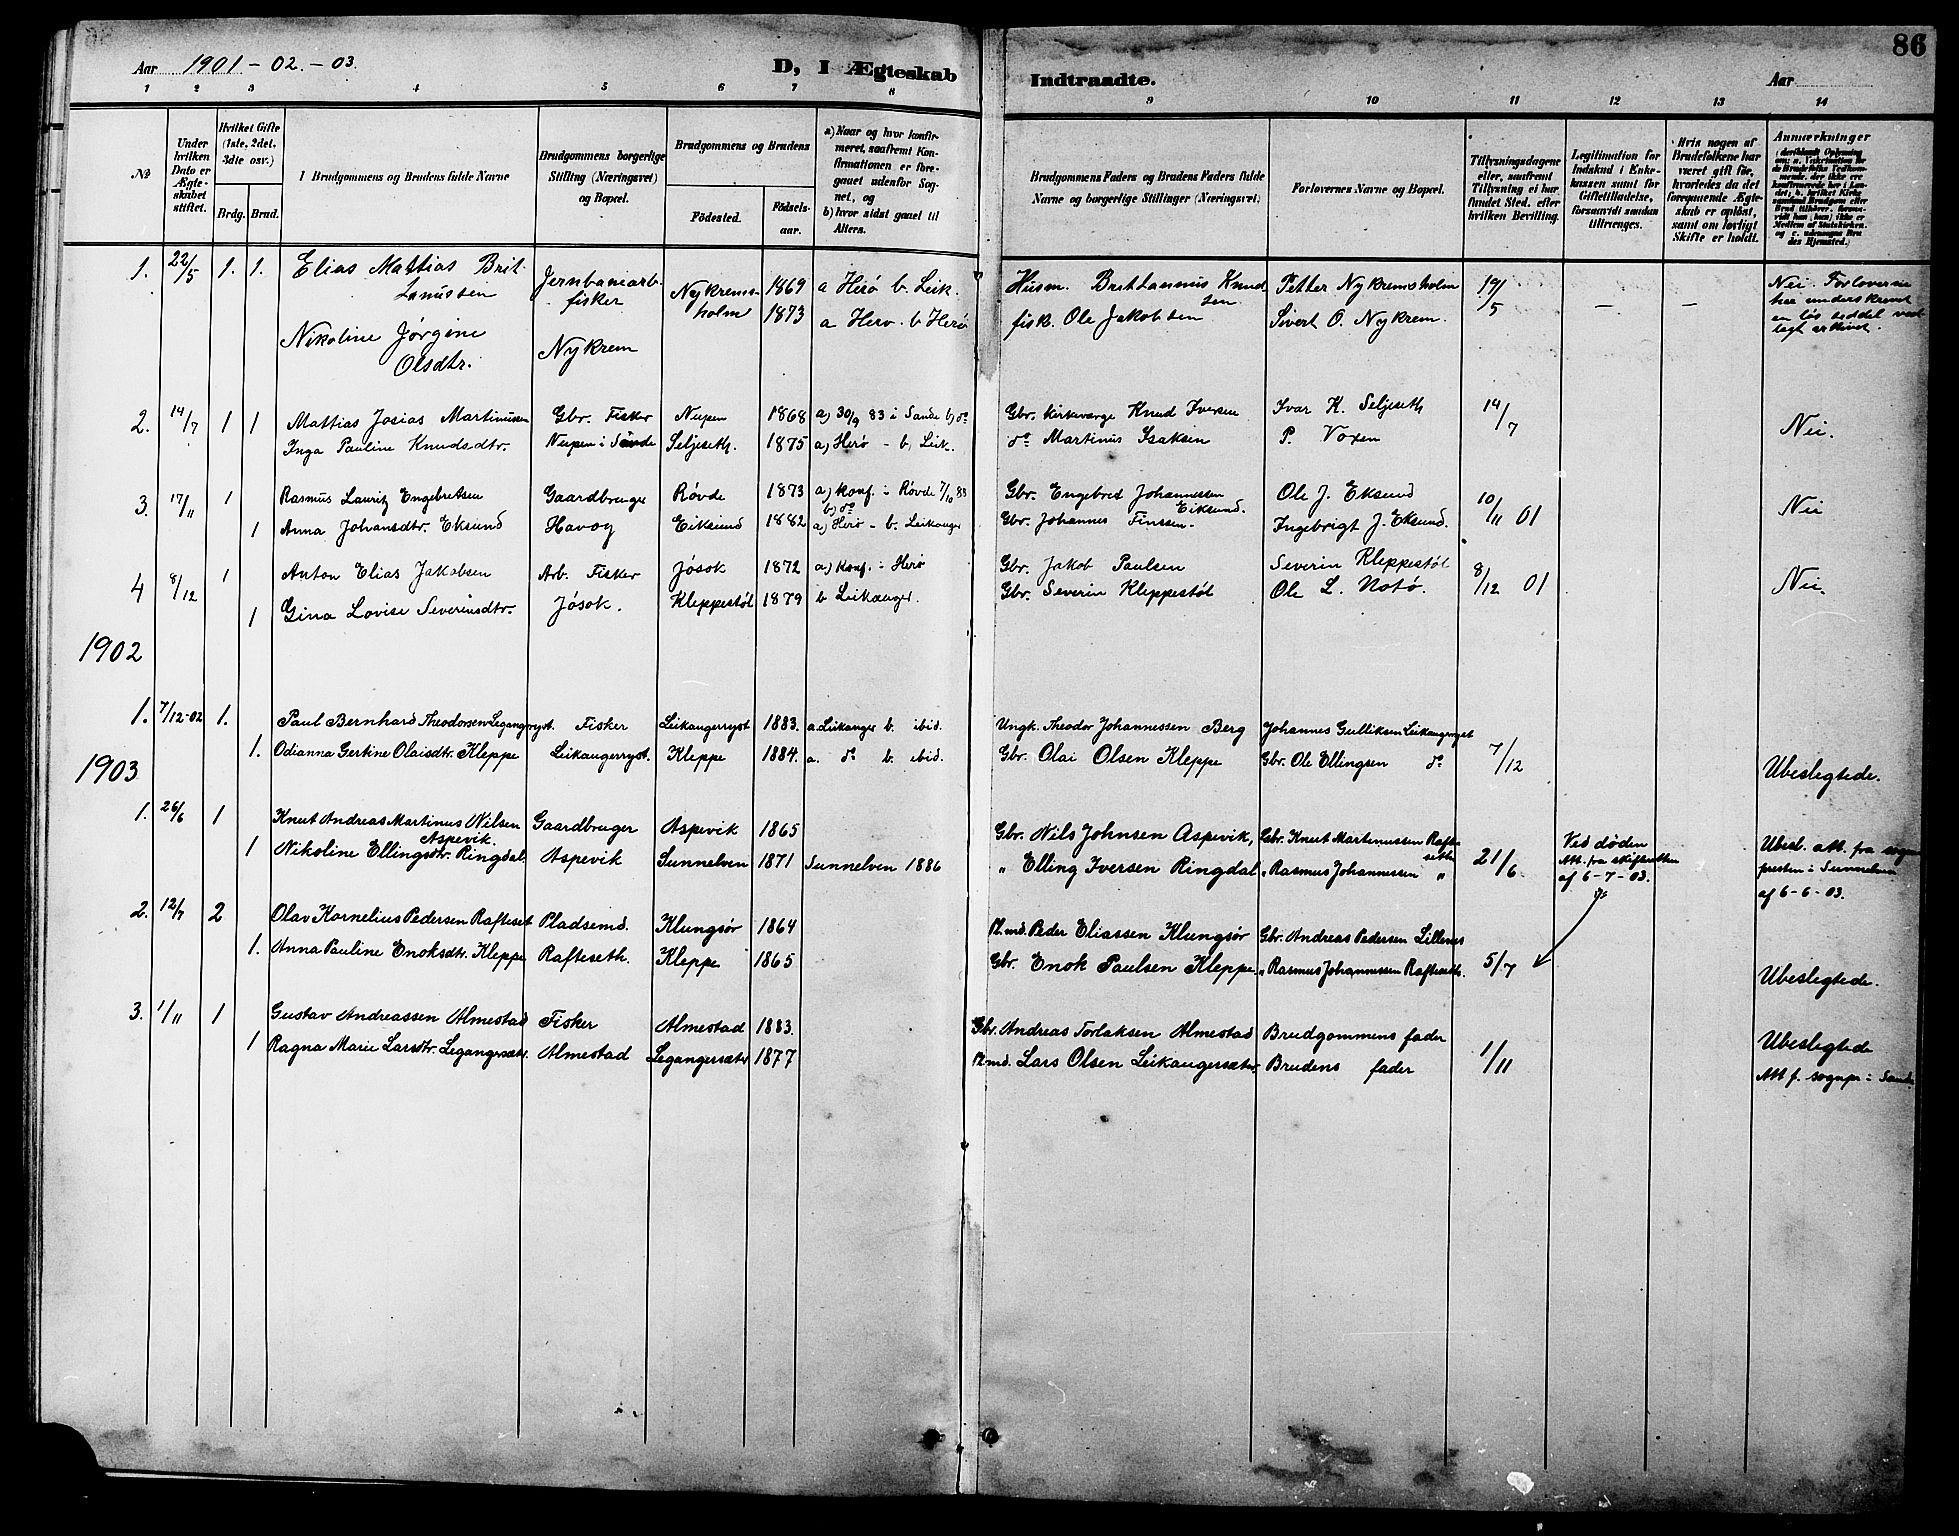 Aar 1901-02.-03.
D, I Ægteskab Indtraadte.
Aar
86
1 2 3 4 5 6 7 8 9 10 11 12 13 14
No
Under hvilken Dato er Ægteskabet stiftet.
Hvilket Gifte (1ste, 2det, 3die osv.)
Brdg. Brud.
Brudgommens og Brudens fulde Navne
Brudgommens borgerlige Stilling (Næringsvei) og Bopæl.
Brudgommens og Brudens
Födested.
Födsels-aar.
a) Naar og hvor konfirmeret, saafremt Konfirmationen er foregaaet udenfor Sognet, og
b) hvor sidst gaaet til Alters.
Brudgommens Faders og Brudens Faders fulde Navne og borgerlige Stillinger (Næringsvei)
Forlovernes Navne og Bopæl.
Tillysningsdagene eller, saafremt Tillysning ei har fundet Sted, efter hvilken Bevilling.
Legitimation for Indskud i Enkekassen samt for Giftetilladelse, forsaavidt saadan tiltrænges.
Hvis nogen af Brudefolkene har været gift för, hvorledes da det foregaaende Ægteskab er oplöst, samt om lovligt Skifte er holdt.
Anmærkninger
1. 22/5 1. 1. Elias Mattias Brit- Jernbaniarb. Nykrems- 1869 a Herø b. Leik. Husm. Knud- Petter Nykremsholm 19/5 — — Nei. Forloverne
fisker holm sen har underskrevet
Nikoline Jørgine Nykrem 1873 a Herø - b Herø fisk. Ole Jakobsen Sivert O. Nykrem. en løs seddel ved-
Olsdtr. lagt arkivet.
2. 14/7 1 1 Mattias Josias Martinussen Gbr. Fisker Nupen 1868 a) 30/9 83 i Sande b) do Gbr. Kirkværge Knud Iversen Ivar K. Seljeseth 14/7 Nei.
Inga Pauline Knudsdtr. Nupen i Sande Seljeseth. 1875 a) Herø - b. Leik. do Martinus Isaksen P. Voxen
3. 17/11 1 Rasmus Lauritz Engebretsen Gaardbruger Røvde 1873 a) konf. i Røvde 7/10 83 b) do Gbr. Engebret Johannessen Ole J. Eksund 10/11 01 Nei
1 Anna Johansdtr. Eksund Havoy Eiksund 1882 a) Herø - b. Leikanger Gbr. Johannes Finssen. Eiksund. Ingebrigt J. Eksund.
4 8/12 1 Anton Elias Jakobsen Arb. Fisker Jøsok 1872 a) konf. i Herø Gbr. Jakob Paulsen Severin Kleppestøl 8/12 01 Nei.
1 Gina Lovise Severinsdtr. Jøsok. Kleppestøl 1879 b Leikanger. Gbr. Severin Kleppestøl Ole L. Notø.
1902
1. 7/12-02 1. Paul Bernhard Theodorsen Legangeryst. Fisker Leikangerryst 1883. a. Leikanger b. ibid. Ungk. Theodor Johannessen Berg Johannes Gulliksen Leikangryst
1. Odianna Gertine Olaisdtr. Kleppe Leikangerryst. Kleppe 1884. a. do b. ibid. Gbr. Olai Olsen Kleppe Gbr. Ole Ellingsen do 7/12 Ubeslegtede.
1903
1. 26/6 1 Knut Andreas Martinus Nilsen Aspevik. Gaardbruger Aspevik 1865 Gbr. Nils Johnsen Aspevik, Gbr. Knut Martinussen Rafte- seth 21/6 Ved døden Ubesl. att. fra sogne-
1 Nikoline Ellingsdtr. Ringdal. Aspevik Sunnelven 1871 Sunnelven 1886 " Elling Iversen Ringdal " Rasmus Johannessen " Att. fra skifteretten af 6-7-03. presten i Sunnelven af 6-6-03.
2. 12/7 2 Olav Kornelius Pedersen Rafteset Pladsemd. Klungsør 1864 Pl.md. Peder Eliassen Klungsør Gbr. Andreas Pedersen Lillenes
1. Anna Pauline Enoksdtr. Kleppe Rafteseth. Kleppe 1865 Gbr. Enok Paulsen Kleppe. " Rasmus Johannessen Rafteseth. 5/7 Ubeslegtede.
3. 1/11 1 Gustav Andreassen Almestad Fisker Almestad 1883. Gbr. Andreas Torlaksen Almestad Brudgommens fader Ubeslegtede
1 Ragna Marie Larsdtr. Legangersætr. Almestad Legangersæter 1877 Pl.md. Lars Olsen Leikangersæter Brudens fader 1/11 Att f. sognepr. i Sande